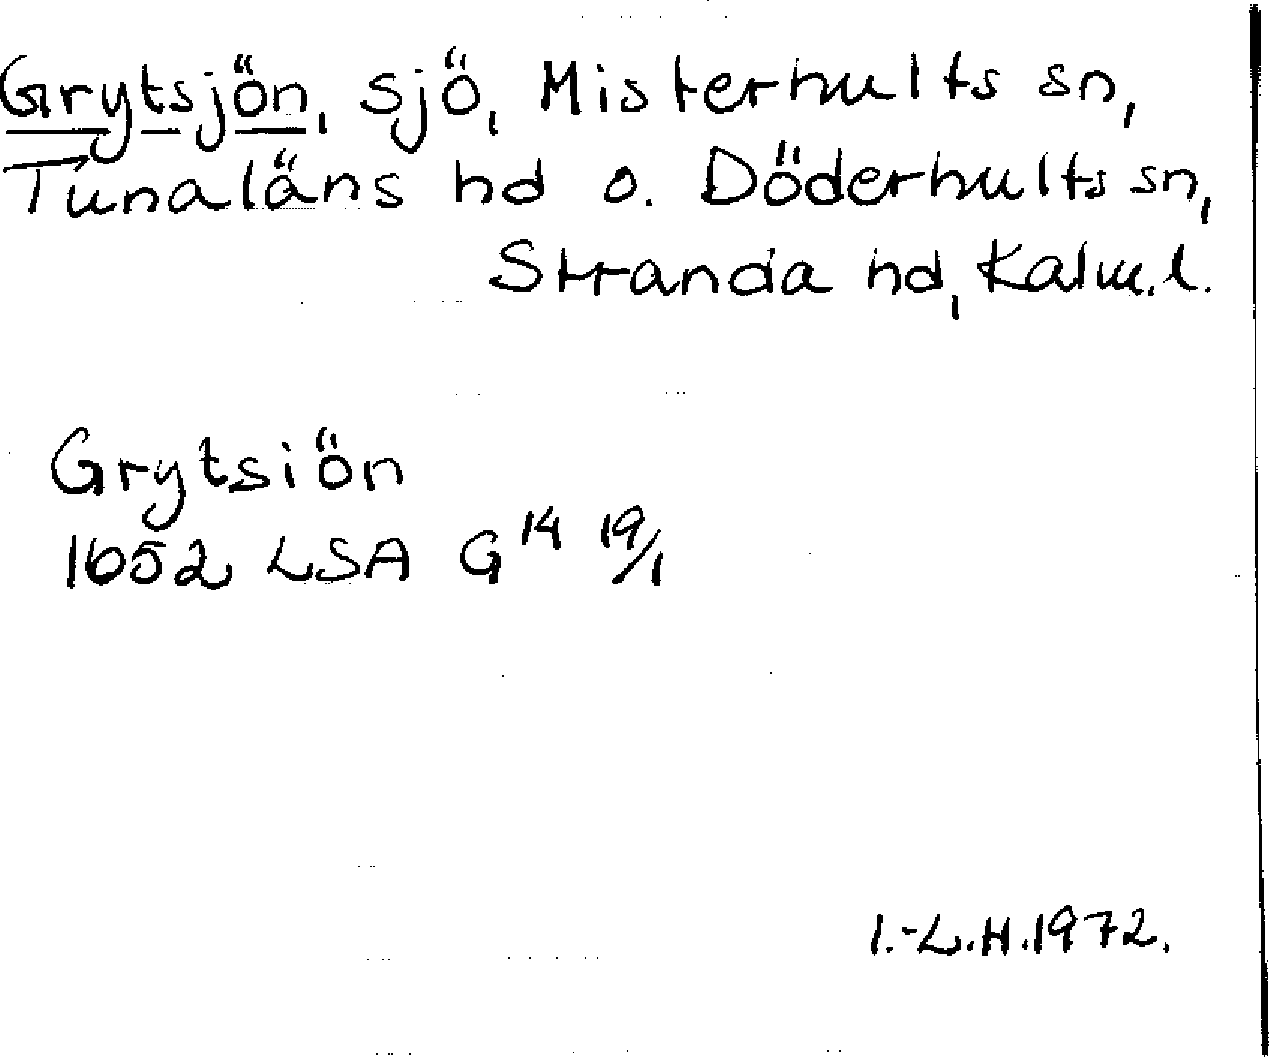 Grytsjön, sjö, Misterhults sn,
Tunaläns hd o. Döderhults sn,
Stranda hd, Kalm.l.
Grytsiön
1652 LSA G 14 19/1
I.-L.H.1972.